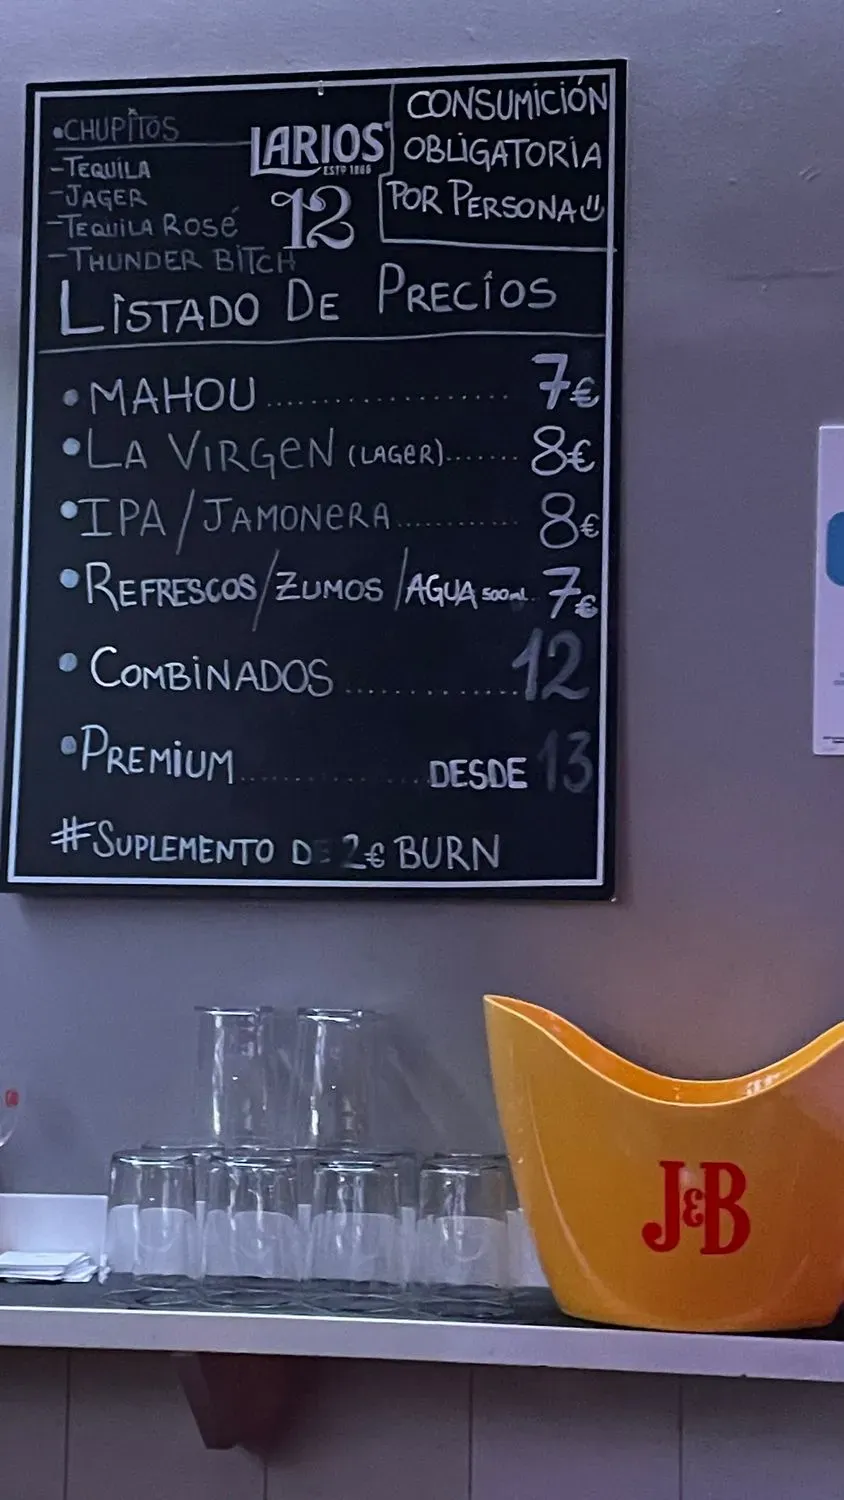 •CHUPITOS
-TEQUILA
-JAGER
-TEQUILA ROSÉ
-THUNDER BITCH
LARIOS
ESTD 1866
12
CONSUMICIÓN
OBLIGATORIA
POR PERSONA
LISTADO DE PRECIOS
• MAHOU.................... 7€
• LA VIRGEN (LAGER)....... 8€
• IPA/JAMONERA............ 8€
• REFRESCOS/ZUMOS/AGUA 500ml.. 7€
• COMBINADOS............... 12
• PREMIUM................ DESDE 13
#SUPLEMENTO DE 2€ BURN
J&B